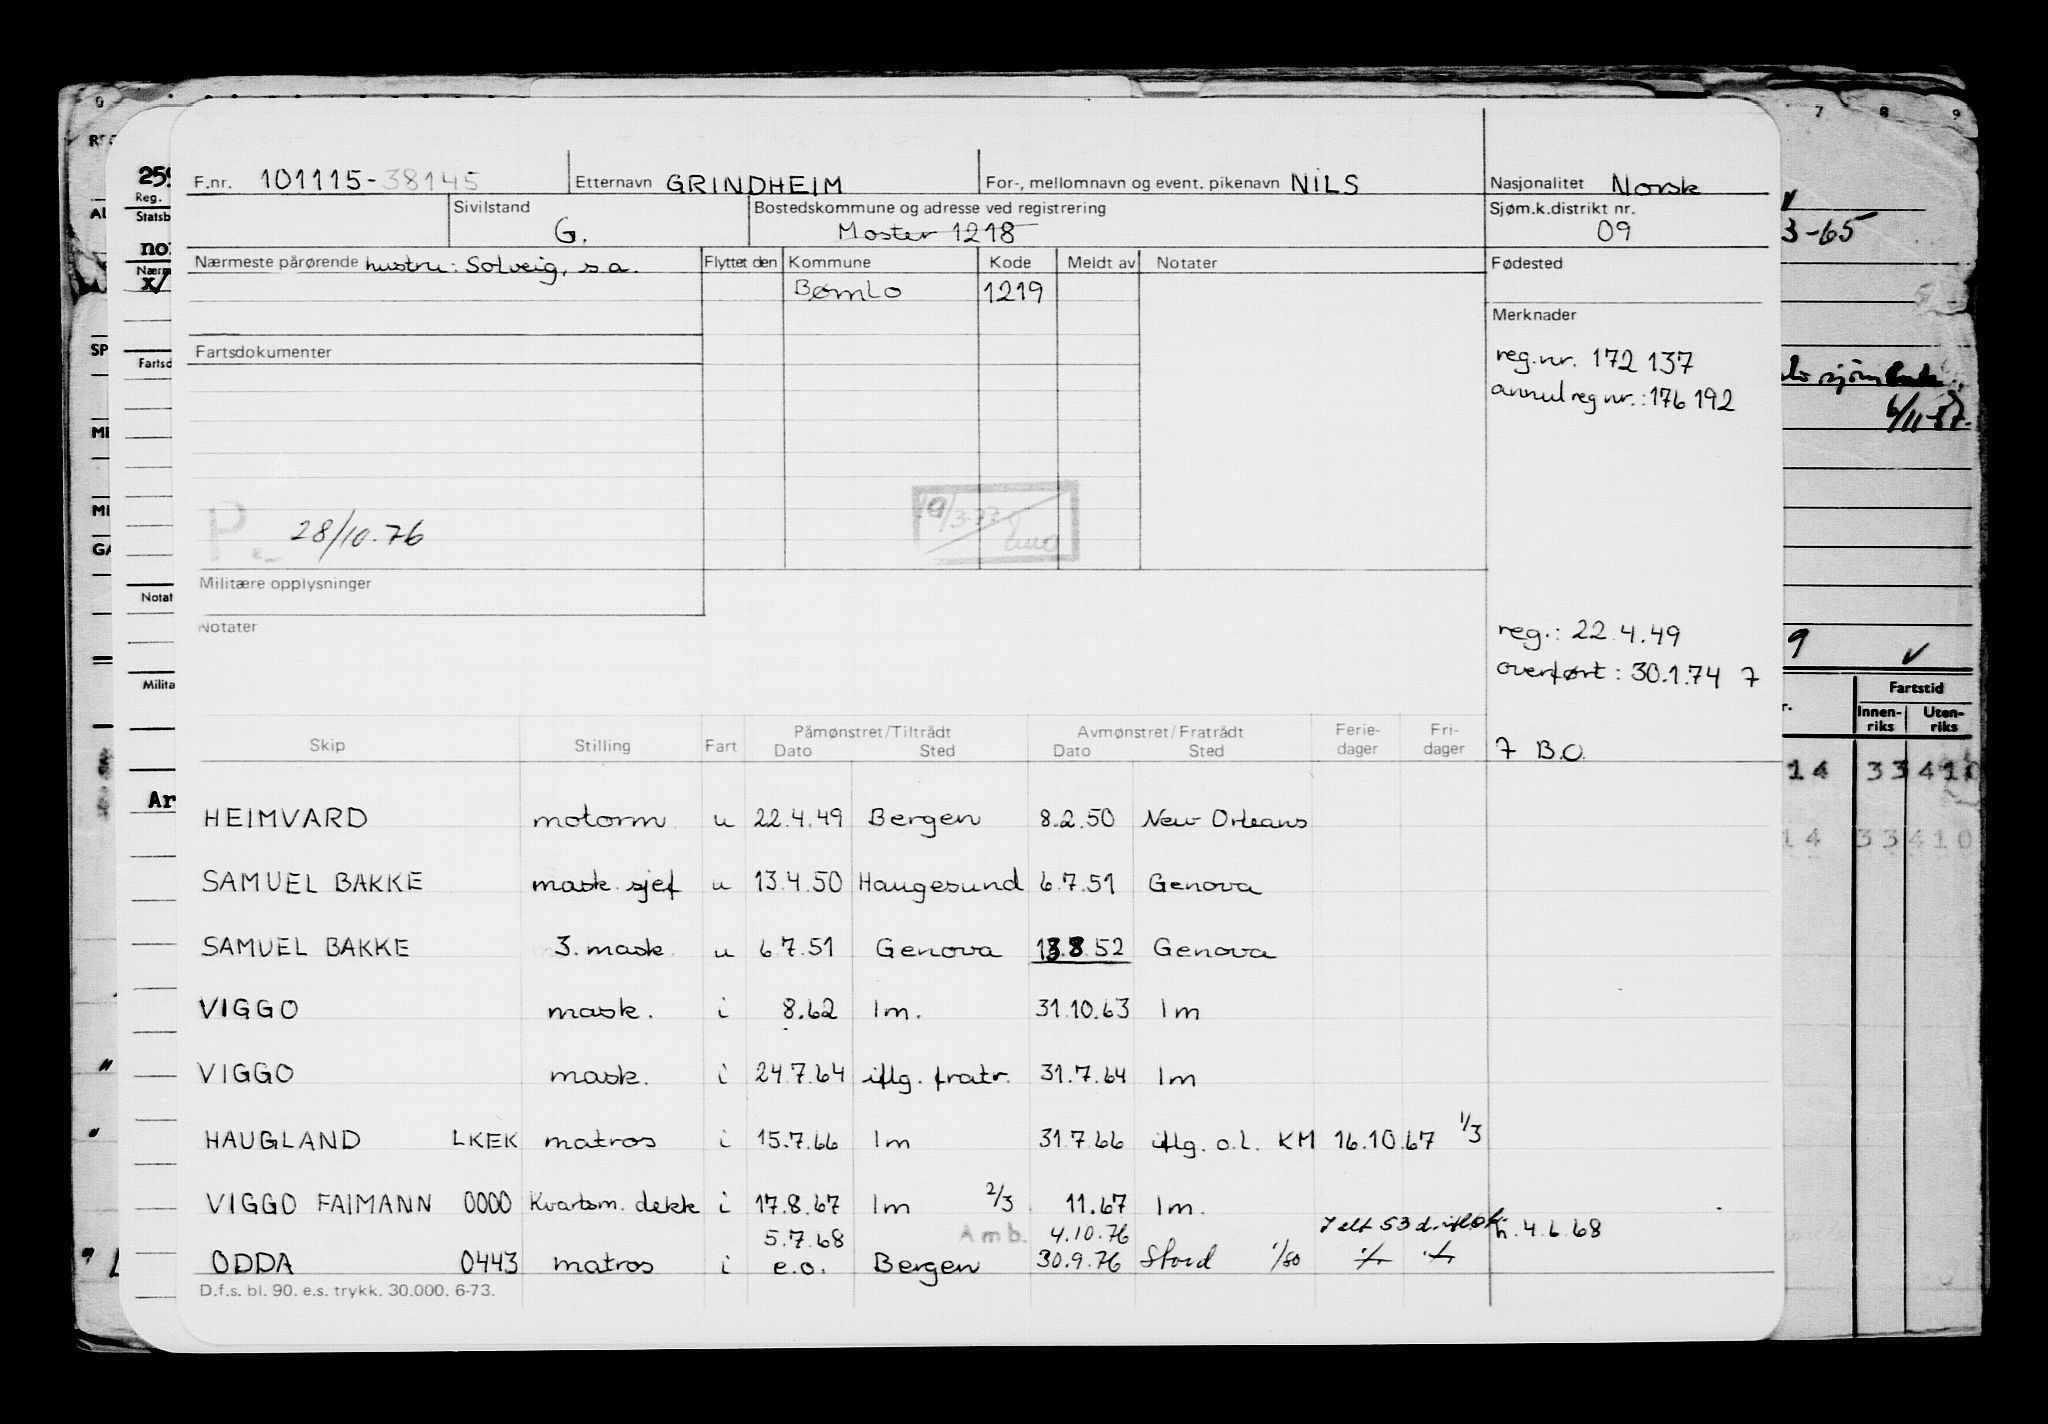 F.nr. 101115-38145 Etternavn GRINDHEIM For-, mellomnavn og event. pikenavn NILS Nasjonalitet Norsk
Sivilstand G. Bostedskommune og adresse ved registrering Moster 1218 Sjøm.k.distrikt nr. 09
Nærmeste pårørende hustru: Solveig, s.a. Flyttet den Kommune Kode Meldt av Notater Fødested
Bømlo 1219
Merknader
reg.nr. 172 137
annul reg nr.: 176 192
Fartsdokumenter
P. 28/10.76
Militære opplysninger
Notater
reg.: 22.4.49
overført: 30.1.74 7
7 B.O.
Skip Stilling Fart Påmønstret/Tiltrådt Dato Sted Avmønstret/Fratrådt Dato Sted Ferie-dager Fri-dager
HEIMVARD motorm. u 22.4.49 Bergen 8.2.50 New Orleans
SAMUEL BAKKE mask. sjef u 13.4.50 Haugesund 6.7.51 Genova
SAMUEL BAKKE 3. mask. u 6.7.51 Genova 13.8.52 Genova
VIGGO mask. i 8.62 Im. 31.10.63 Im
VIGGO mask. i 24.7.64 iflg. fratr. 31.7.64 Im
HAUGLAND LKEK matros i 15.7.66 Im 31.7.66 iflg. o.l. KM 16.10.67 1/3
VIGGO FAIMANN 0000 Kvartsm. dekk i 17.8.67 Im 2/3 11.67 Im.
5.7.68 Amb. 4.10.76 h. 4.6.68
ODDA 0443 matros i e.o. Bergen 30.9.76 Stord 1/80
D.f.s. bl. 90. e.s. trykk. 30.000. 6-73.
7 8 9
3-65
6/11-57.
9
Fartstid
Innen-riks Uten-riks
14 33 410
14 33 410
Reg.
Statsb
Fartsd
Notat
Milita